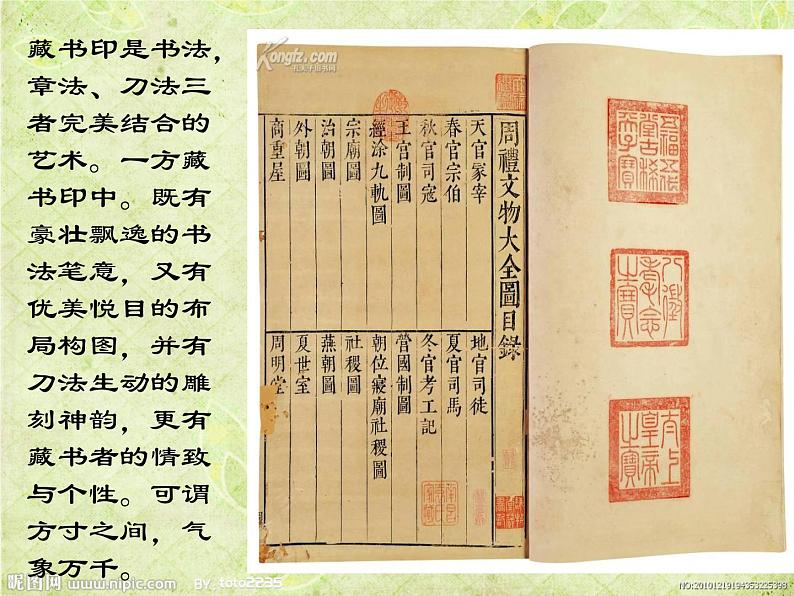 藏书印是书法，
章法、刀法三
者完美结合的
艺术。一方藏
书印中。既有
豪壮飘逸的书
法笔意，又有
优美悦目的布
局构图，并有
刀法生动的雕
刻神韵，更有
藏书者的情致
与个性。可谓
方寸之间，气
象万千。
Kongfz.com
孔夫子旧书网
周禮文物大全圖目錄
天官冢宰
地官司徒
春官宗伯
夏官司馬
秋官司寇
冬官考工記
王宮制圖
營國制圖
經涂九軌圖
朝位寢廟社稷圖
宗廟圖
社稷圖
治朝圖
燕朝圖
外朝圖
夏世室
商重屋
周明堂
五福五代
堂古稀
天子寶
八徵
耄念
之寶
太上
皇帝
之寶
昵图网 www.nipic.com
BY: toto2235
NO:20101219194353225398